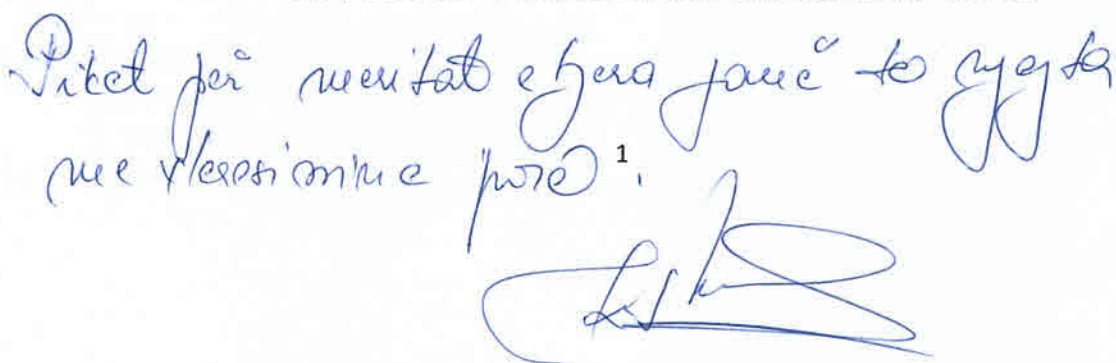 Piket për meritat e tjera janë të njejta
me vlerësimin e parë 1.